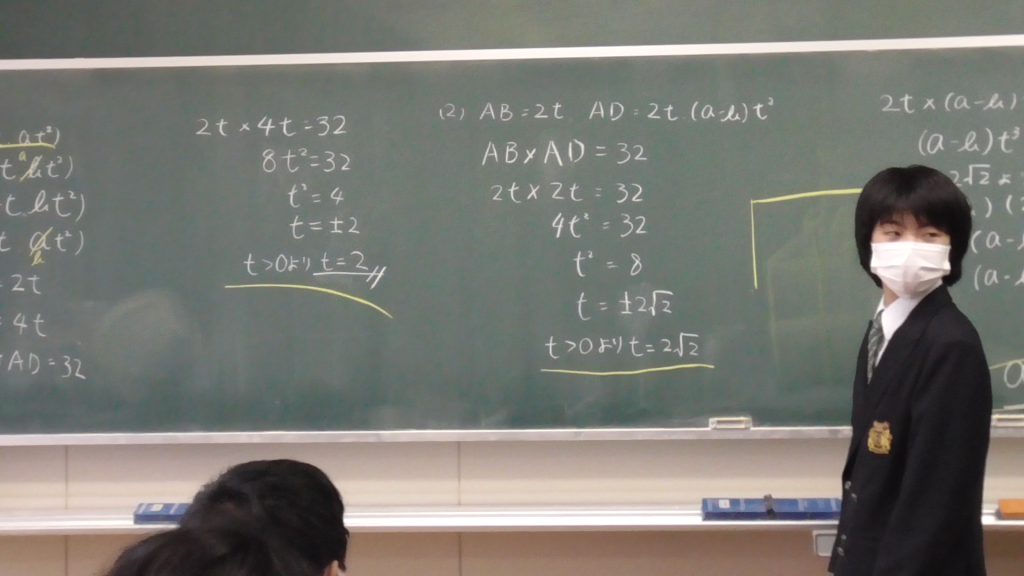 at²)
bt²)
t bt²)
t at²)
b
2t
4t
AD=32
2t×4t=32
8t²=32
t²=4
t=±2
t>0より t=2
(2) AB=2t AD=2t (a-b)t²
AB×AD=32
2t×2t=32
4t²=32
t²=8
t=±2√2
t>0より t=2√2
2t×(a-b)
(a-b)t³
2√2
(a-
(a-